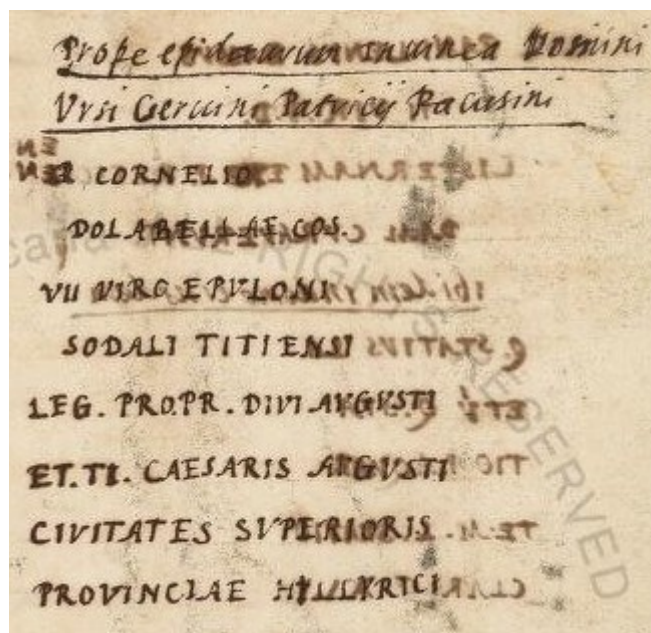 Prope epidaurum in vinea Domini
Vrsi Cervini Patricij Racusini
P. CORNELIO
DOLABELLAE COS.
VII VIRO EPVLONI
SODALI TITIENSI
LEG. PRO.PR. DIVI AVGVSTI
ET.TI. CAESARIS AVGVSTI
CIVITATES SVPERIORIS
PROVINCIAE HILLYRICI
RIGHTS RESERVED